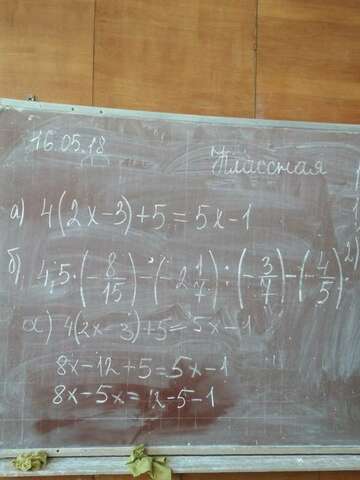 16.05.18
Классная
а) 4(2х-3)+5=5х-1
б) 4,5·(-8/15)-(-2 1/7):(-3/7)-(-4/5)·
2)
а) 4(2х-3)+5=5х-1
8х-12+5=5х-1
8х-5х=12-5-1